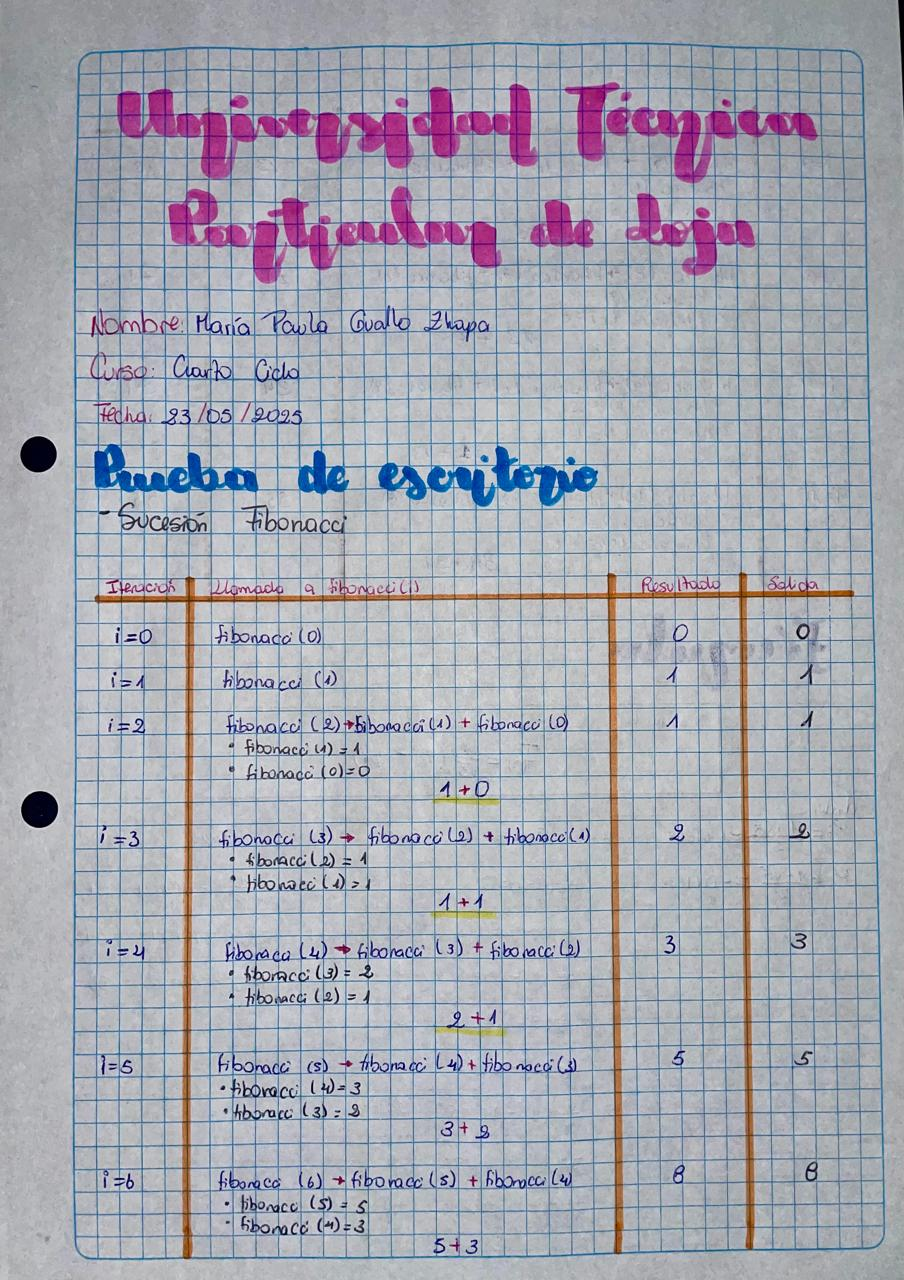 Universidad Técnica
Particular de Loja
Nombre: María Paula Gualto Zhapa
Curso: Cuarto Ciclo
Fecha: 23/05/2025
Prueba de escritorio
- Sucesión Fibonacci
Iteración Llamada a fibonacci(i) Resultado Salida
i=0 fibonacci (0) 0 0
i=1 fibonacci (1) 1 1
i=2 fibonacci (2) → fibonacci(1) + fibonacci (0) 1 1
• fibonacci (1) = 1
• fibonacci (0)=0
1+0
i=3 fibonacci (3) → fibonacci (2) + fibonacci (1) 2 2
• fibonacci (2) = 1
• fibonacci (1) = 1
1+1
i=4 fibonacci (4) → fibonacci (3) + fibonacci (2) 3 3
• fibonacci (3) = 2
• fibonacci (2) = 1
2+1
i=5 fibonacci (5) → fibonacci (4) + fibonacci (3) 5 5
• fibonacci (4)=3
• fibonacci (3) = 2
3+2
i=6 fibonacci (6) → fibonacci (5) + fibonacci (4) 8 8
• fibonacci (5) = 5
• fibonacci (4)=3
5+3